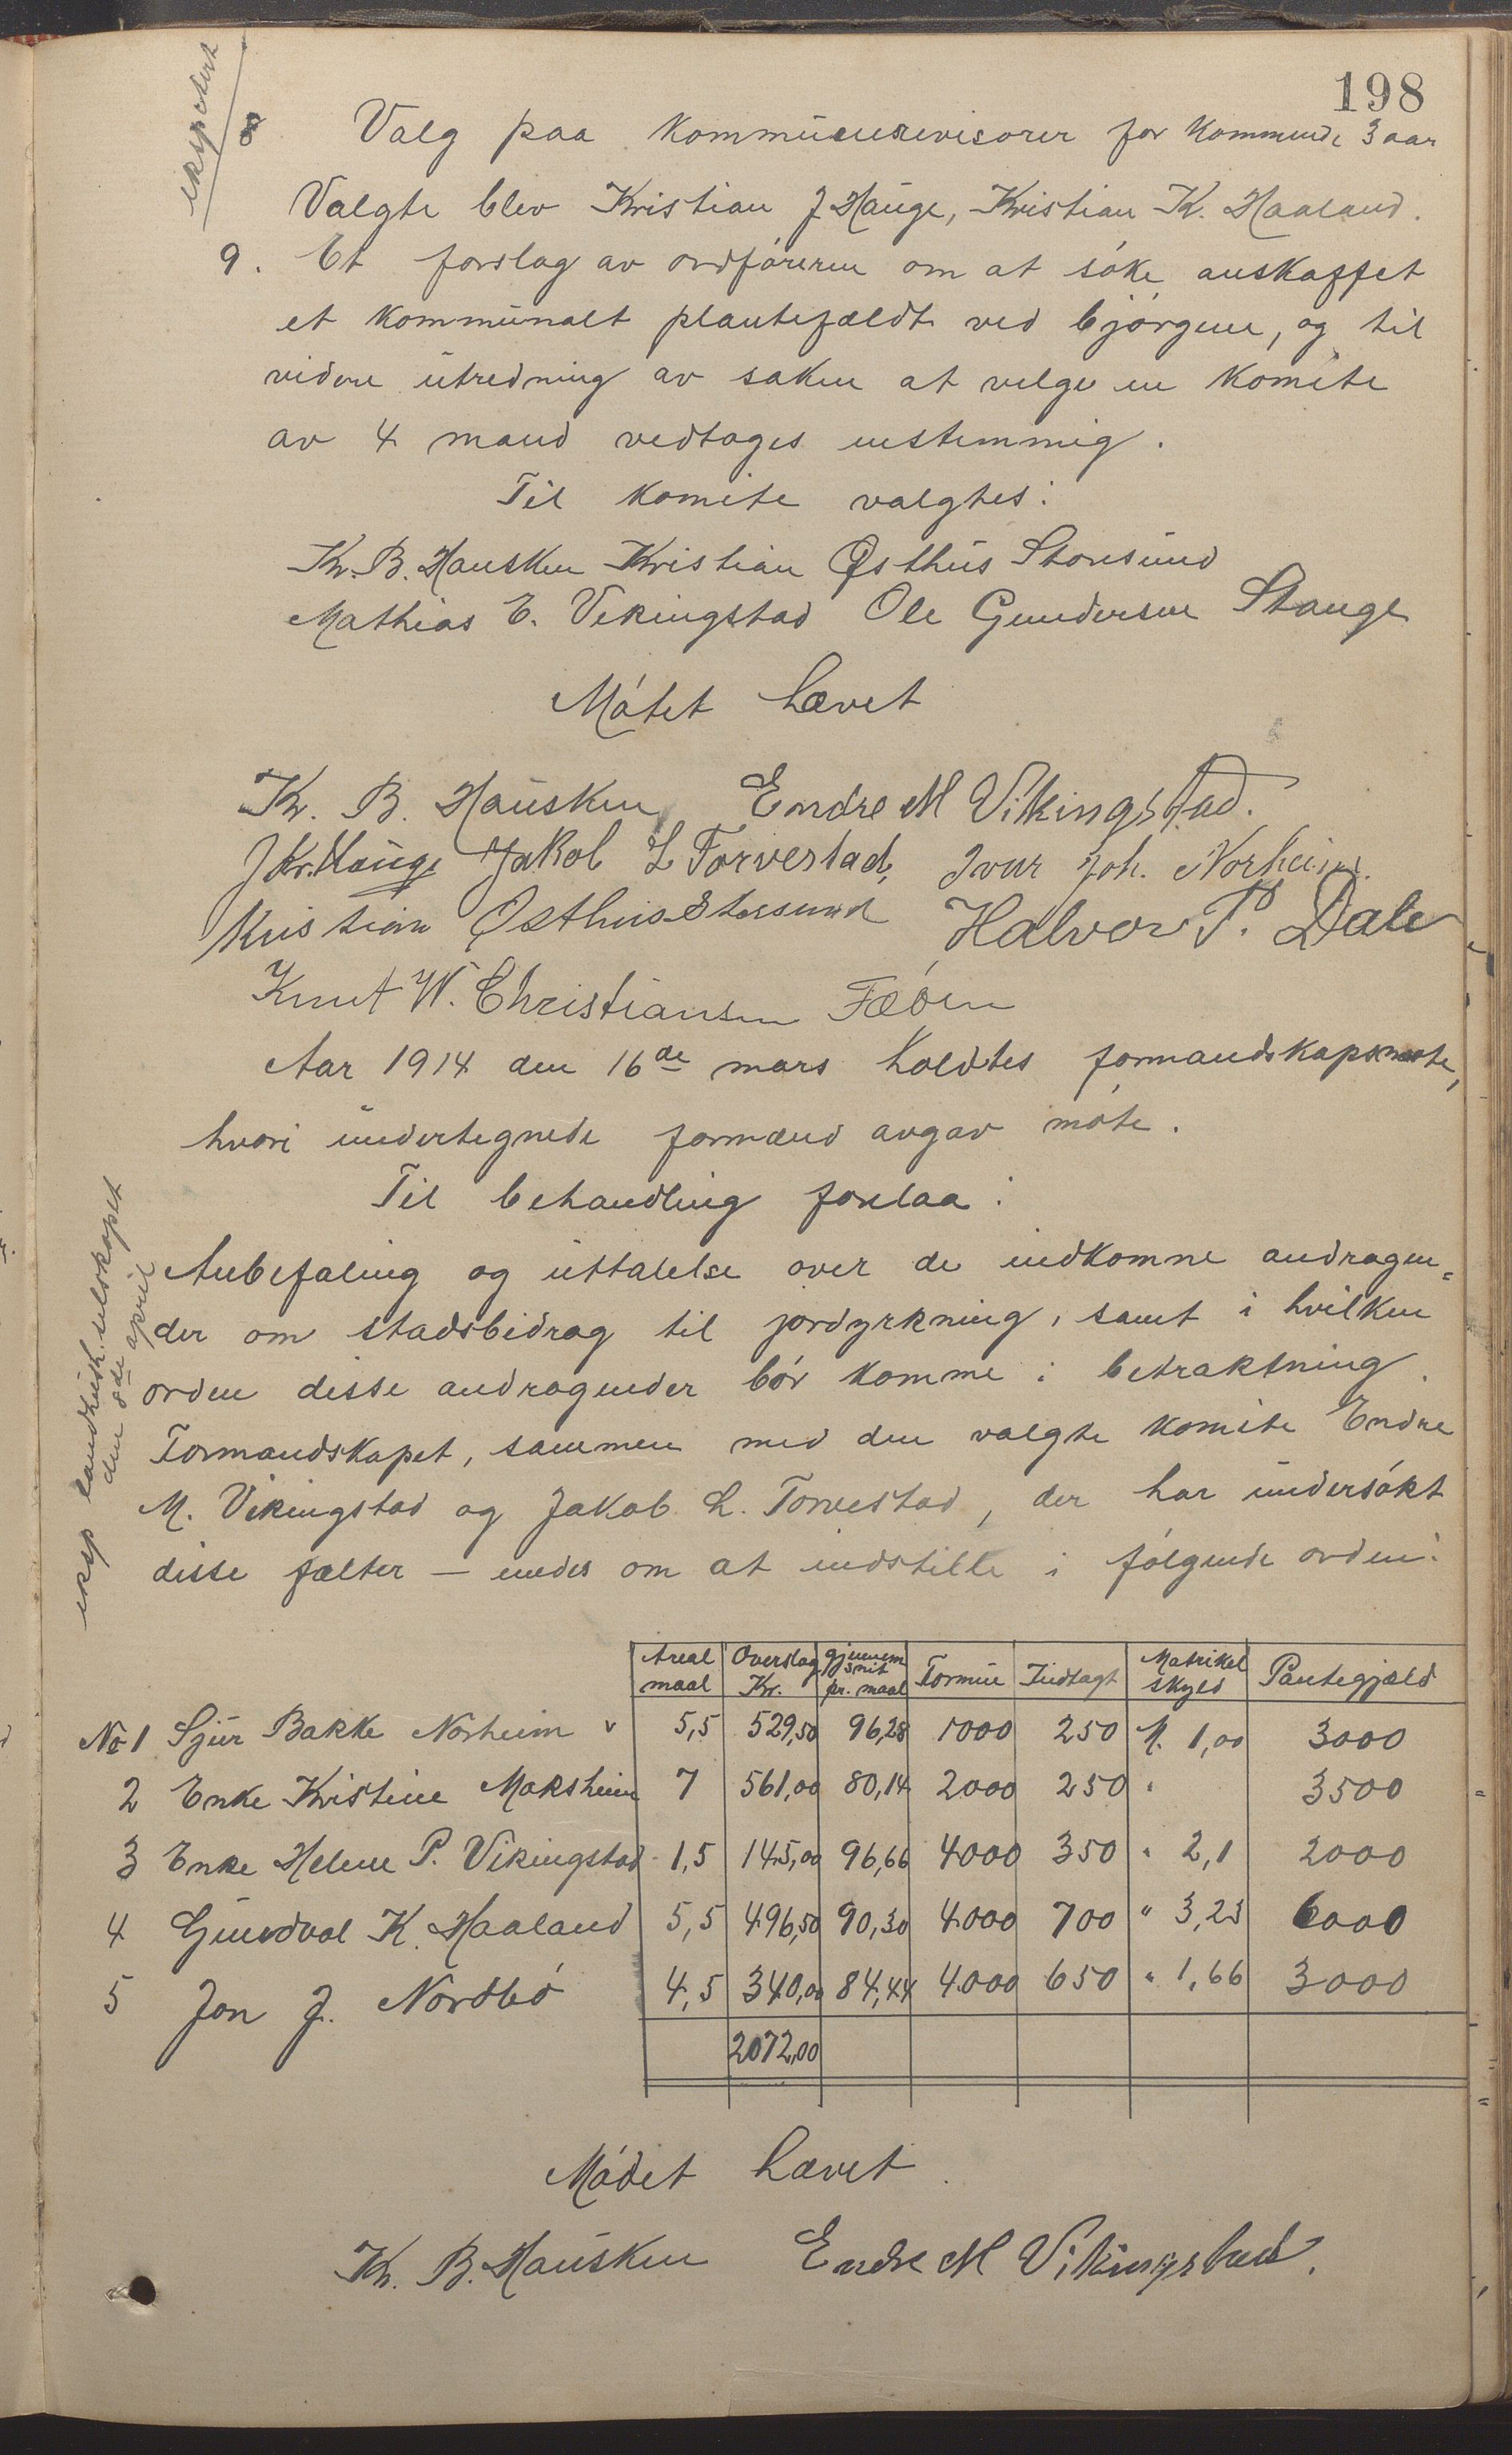 198
ekspedert
8 Valg paa kommunerevisorer for kommende 3 aar
Valgte blev Kristian J Hauge, Kristian K. Haaland.
9. Et forslag av ordføreren om at søke anskaffet
et kommunalt plantefældt ved bjørgene, og til
videre utredning av saken at velge en komite
av 4 mand vedtages enstemmig.
Til komite valgtes:
Kr. B. Hausken Kristian Østhus Storesund
Mathias E. Vikingstad Ole Gundersen Stange
Møtet hævet
Kr. B. Hausken Endre M Vikingstad.
J Kr. Hauge Jakob L Torvestad, Ivar Joh. Norheim.
Kristian Østhus Storsund Halvor P. Dale
Knut W. Christiansen Fæøen
Aar 1914 den 16de mars holdtes formandskapsmøte,
hvori undertegnede formænd avgav møte.
Til behandling forelaa:
eksp landhush. selskapet
den 8de april
Anbefaling og uttalelse over de indkomne andragen=
der om stadsbidrag til jordyrkning, samt i hvilken
orden disse andragender bør komme i betraktning.
Formandskapet, sammen med den valgte komite Endre
M. Vikingstad og Jakob L. Torvestad, der har undersøkt
disse fælter — enedes om at indstille i følgende orden:
Areal maal Overslag Kr. gjennemsnit pr. maal Formue Indtægt Matrikel skyld Pantegjæld
No 1 Sjur Bakke Norheim v 5,5 529,50 96,28 1000 250 M. 1,00 3000
2 Enke Kristine Moksheim 7 561,00 80,14 2000 250 " 3500
3 Enke Helene P. Vikingstad 1,5 145,00 96,66 4000 350 " 2,1 2000
4 Gundval K. Haaland 5,5 496,50 90,30 4000 700 " 3,23 6000
5 Jon J. Nordbø 4,5 340,00 84,44 4000 650 " 1,66 3000
2072,00
Mødet hævet.
Kr. B. Hausken Endre M Vikingstad.